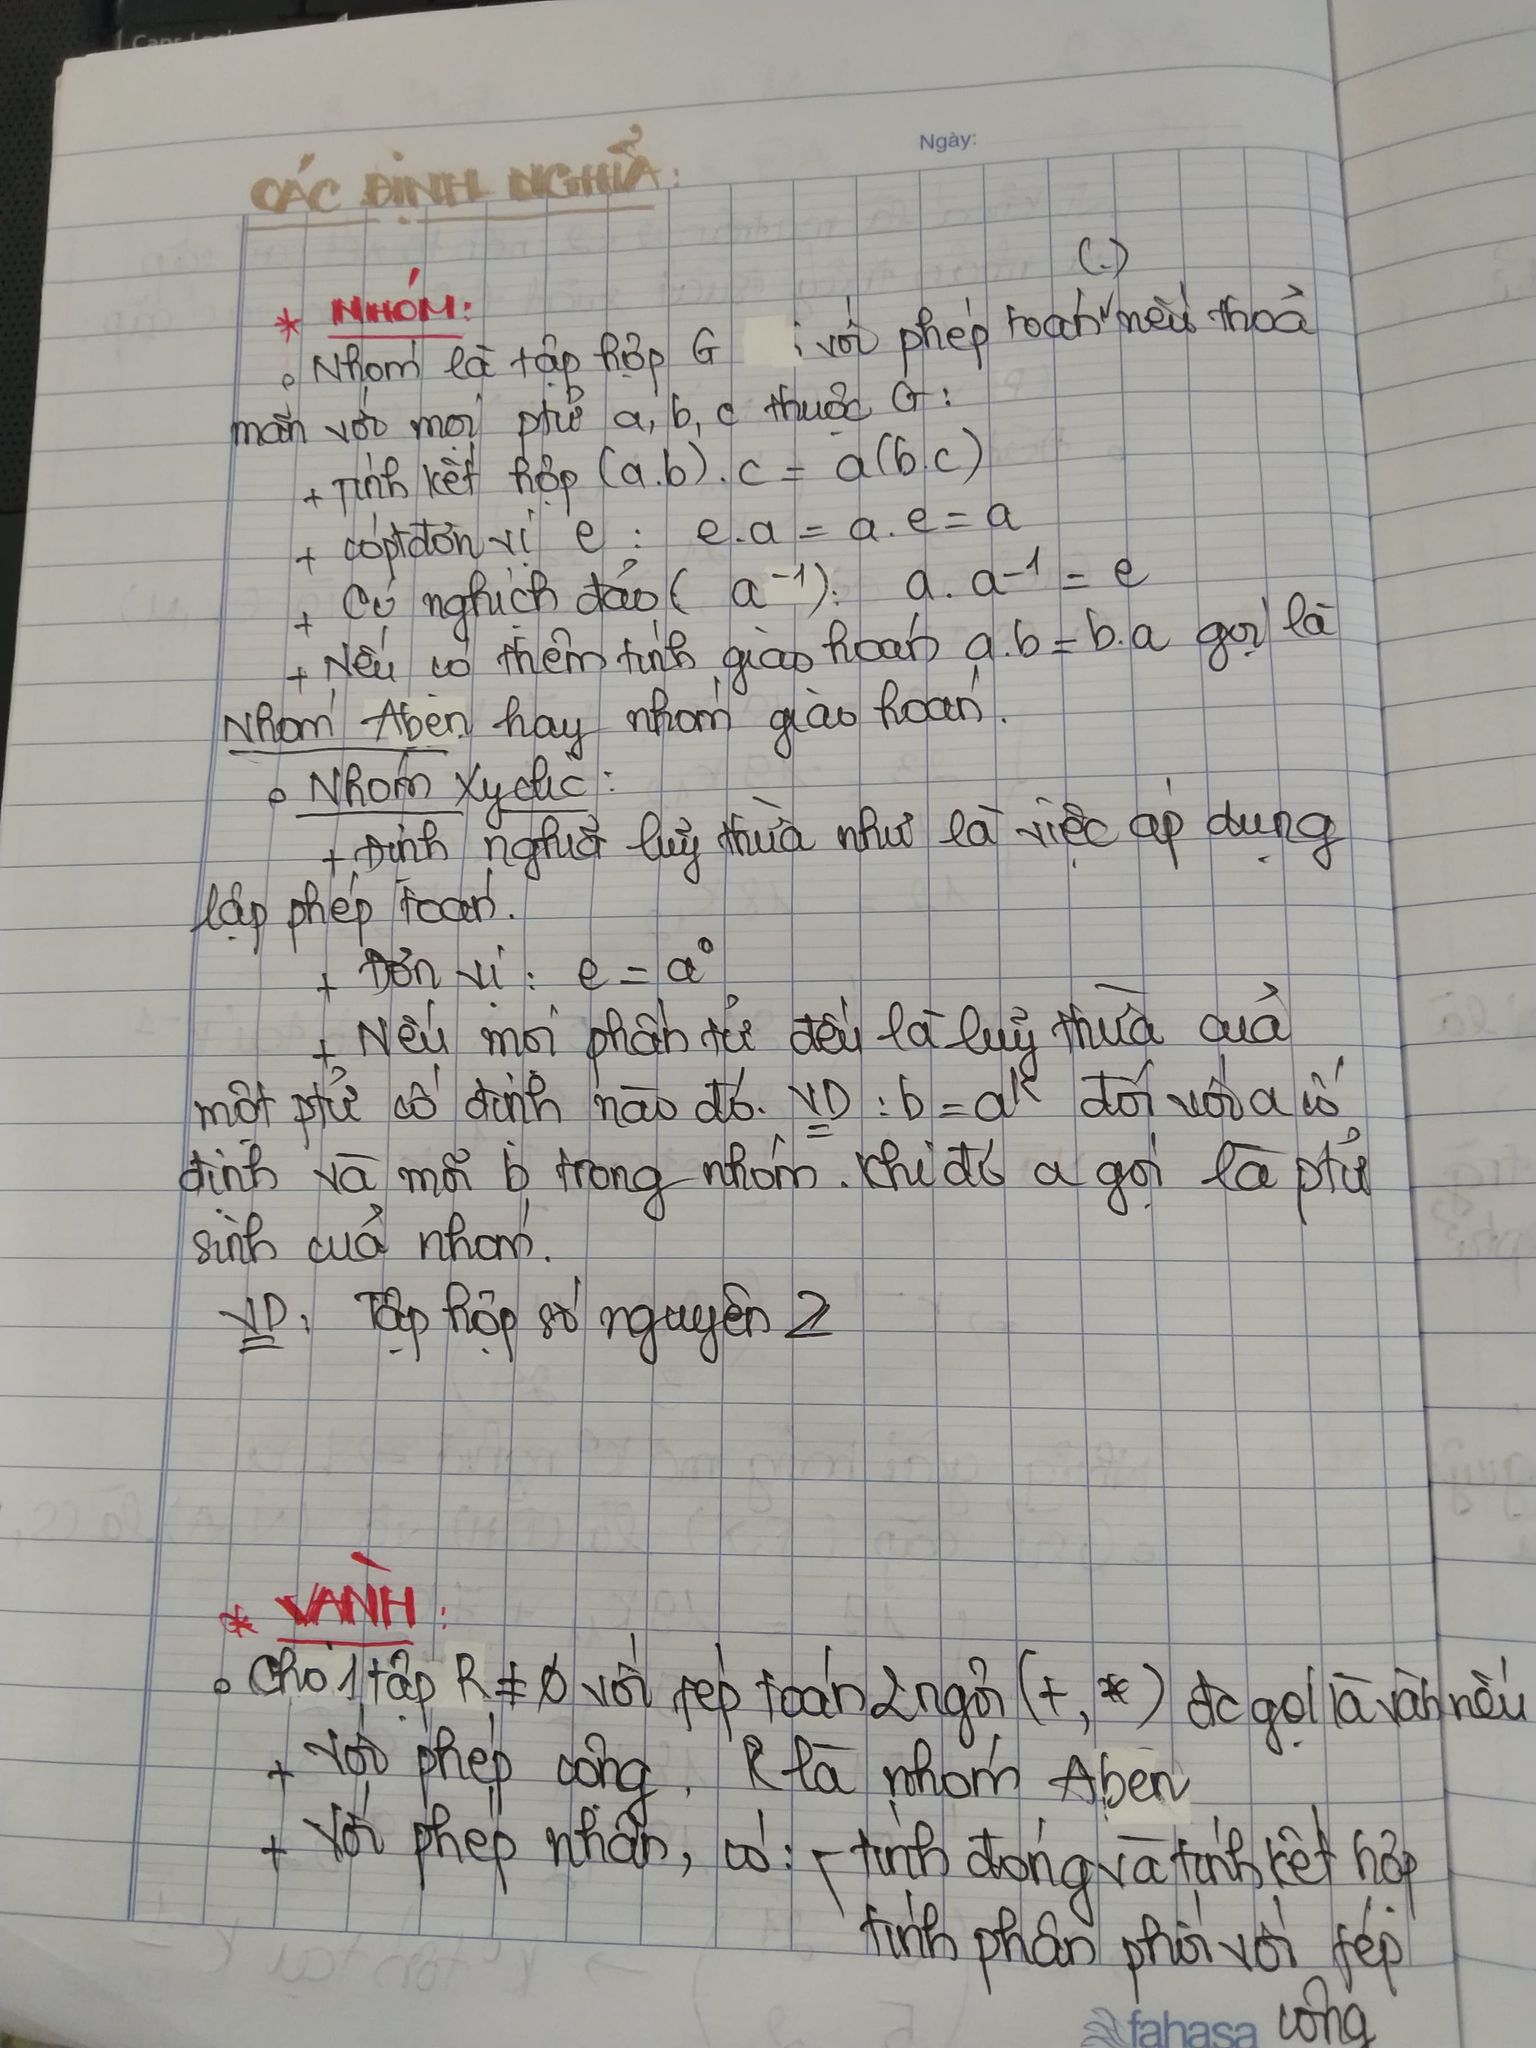 Ngày:
CÁC ĐỊNH NGHĨA:
(.)
* NHÓM:
Nhóm là tập hợp G với phép toán nếu thoả
mãn với mọi ptử a, b, c thuộc G:
+ Tính kết hợp (a.b).c = a(b.c)
+ có pt đơn vị e : e.a = a.e = a
+ Có nghịch đảo ( a⁻¹): a.a⁻¹ = e
+ Nếu có thêm tính giao hoán a.b = b.a gọi là
Nhóm Aben hay nhóm giao hoán.
Nhóm Xyclic:
+ Định nghĩa luỹ thừa như là việc áp dụng
lặp phép toán.
+ Đơn vị: e = a⁰
+ Nếu mọi phần tử đều là luỹ thừa của
một ptử cố định nào đó. VD : b = aᵏ đối với a cố
định và mỗi b trong nhóm. Khi đó a gọi là ptử
sinh của nhóm.
VD: Tập hợp số nguyên Z
* VÀNH:
Cho 1 tập R ≠ ∅ với fép toán 2 ngôi (+, *) đc gọi là vành nếu
+ Với phép cộng, R là nhóm Aben
+ Với phép nhân, có: - tính đóng và tính kết hợp
tính phân phối với fép
cộng
fahasa
Caps Lock